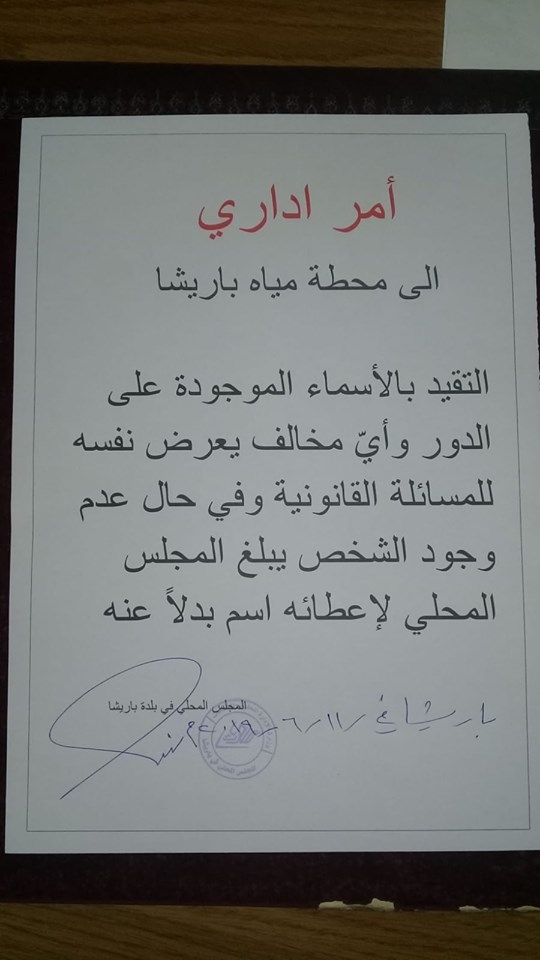 أمر اداري
الى محطة مياه باريشا
التقيد بالأسماء الموجودة على
الدور وأيّ مخالف يعرض نفسه
للمسائلة القانونية وفي حال عدم
وجود الشخص يبلغ المجلس
المحلي لإعطائه اسم بدلاً عنه
المجلس المحلي في بلدة باريشا
باريشا في ١١/٦/٢٠١٩م